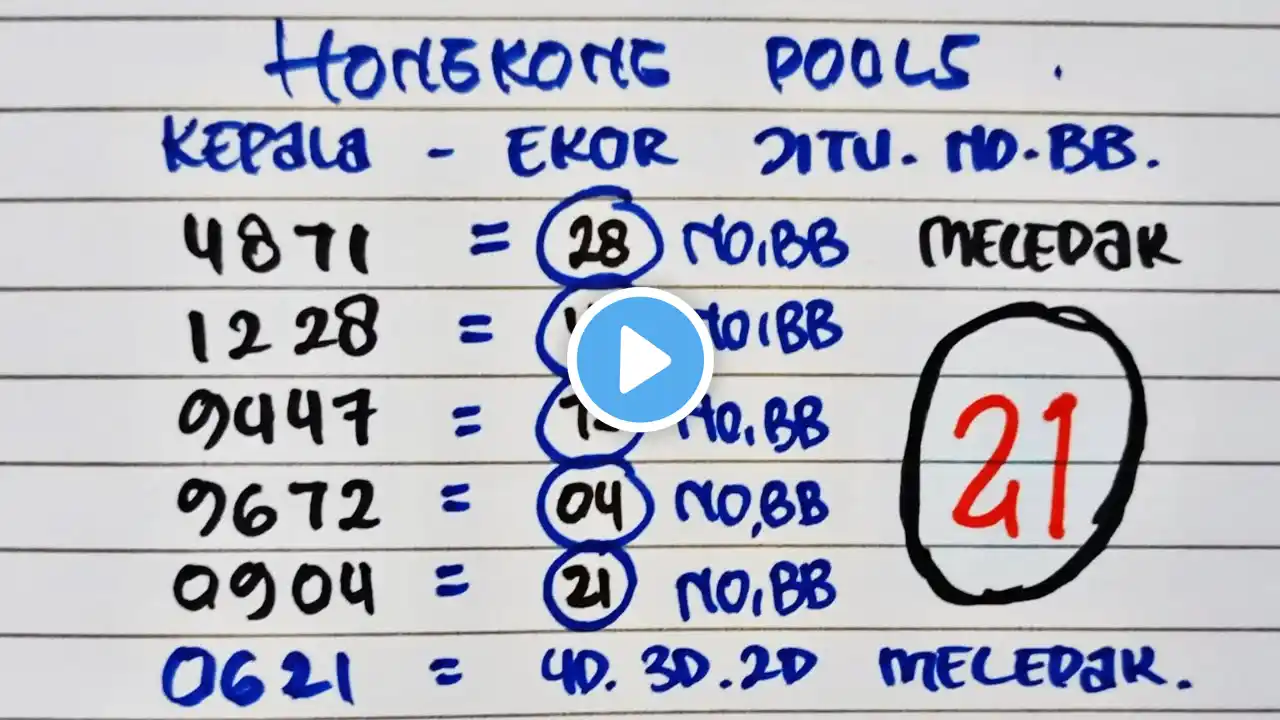 HONGKONG POOLS.
KEPALA - EKOR JITU. NO. BB.
4871 = 28 NO, BB MELEDAK
1228 = NO, BB
9447 = NO, BB 21
9672 = 04 NO, BB
0904 = 21 NO, BB
0621 = 4D. 3D. 2D MELEDAK.